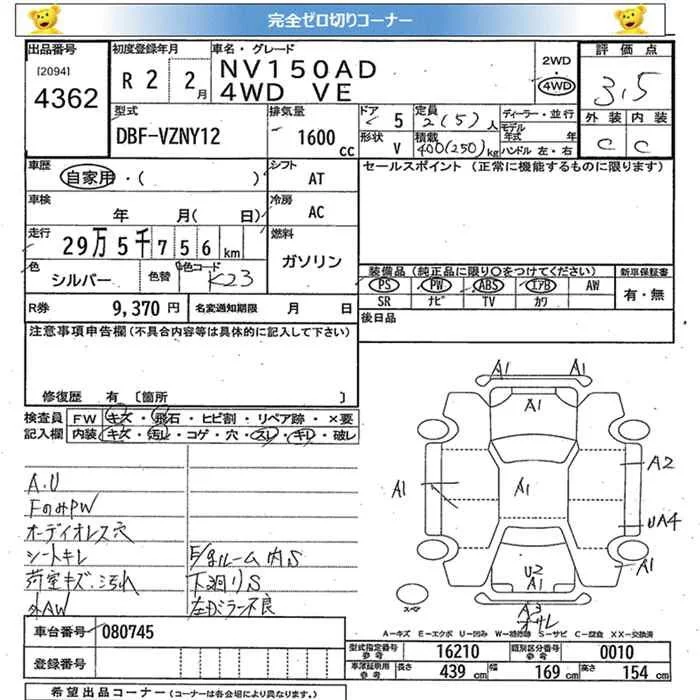 完全ゼロ切りコーナー
出品番号 初度登録年月 車名・グレード 評価点
[2094] 4362 R 2 2月 NV150AD 2WD
4WD VE 4WD 3.5
型式 排気量 ドア 5 定員 2(5)人 ディーラー・並行 外装 内装
DBF-VZNY12 1600cc 形状 V 積載 400(250)kg モデル年式 年 ハンドル 左・右 C C
車歴 シフト セールスポイント (正常に機能するものに限ります)
自家用・( ) AT
車検 冷房
年 月( 日) AC
走行 29万5千756km 燃料
色 シルバー 色替 色コード K23 ガソリン 装備品(純正品に限り○をつけてください) 新車保証書
PS PW ABS エアB AW 有・無
R券 9,370円 名変通知期限 月 日 SR ナビ TV カワ
注意事項申告欄(不具合内容等は具体的に記入して下さい) 後日品
修復歴 有 〔箇所 〕
検査員 FW キズ・飛石・ヒビ割・リペア跡・×要
記入欄 内装 キズ・汚レ・コゲ・穴・スレ・キレ・破レ
A1 A1
A1
A1 A1 A2
UA4
A1
U2
A1
A3
スペア
A.U
FのみPW
オーディオレス穴
シートキレ E/gルーム内S
荷室キズ・汚れ 下廻りS
外AW 左ドアミラー不良
A－キズ E－エクボ U－凹み W－補修跡 S－サビ C－腐食 XX－交換済
車台番号 080745
登録番号
型式指定番号 参考 16210 類別区分番号 参考 0010
車検証使用 参考 長さ 439cm 幅 169cm 高さ 154cm
希望出品コーナー(コーナーは各会場により異なります。)